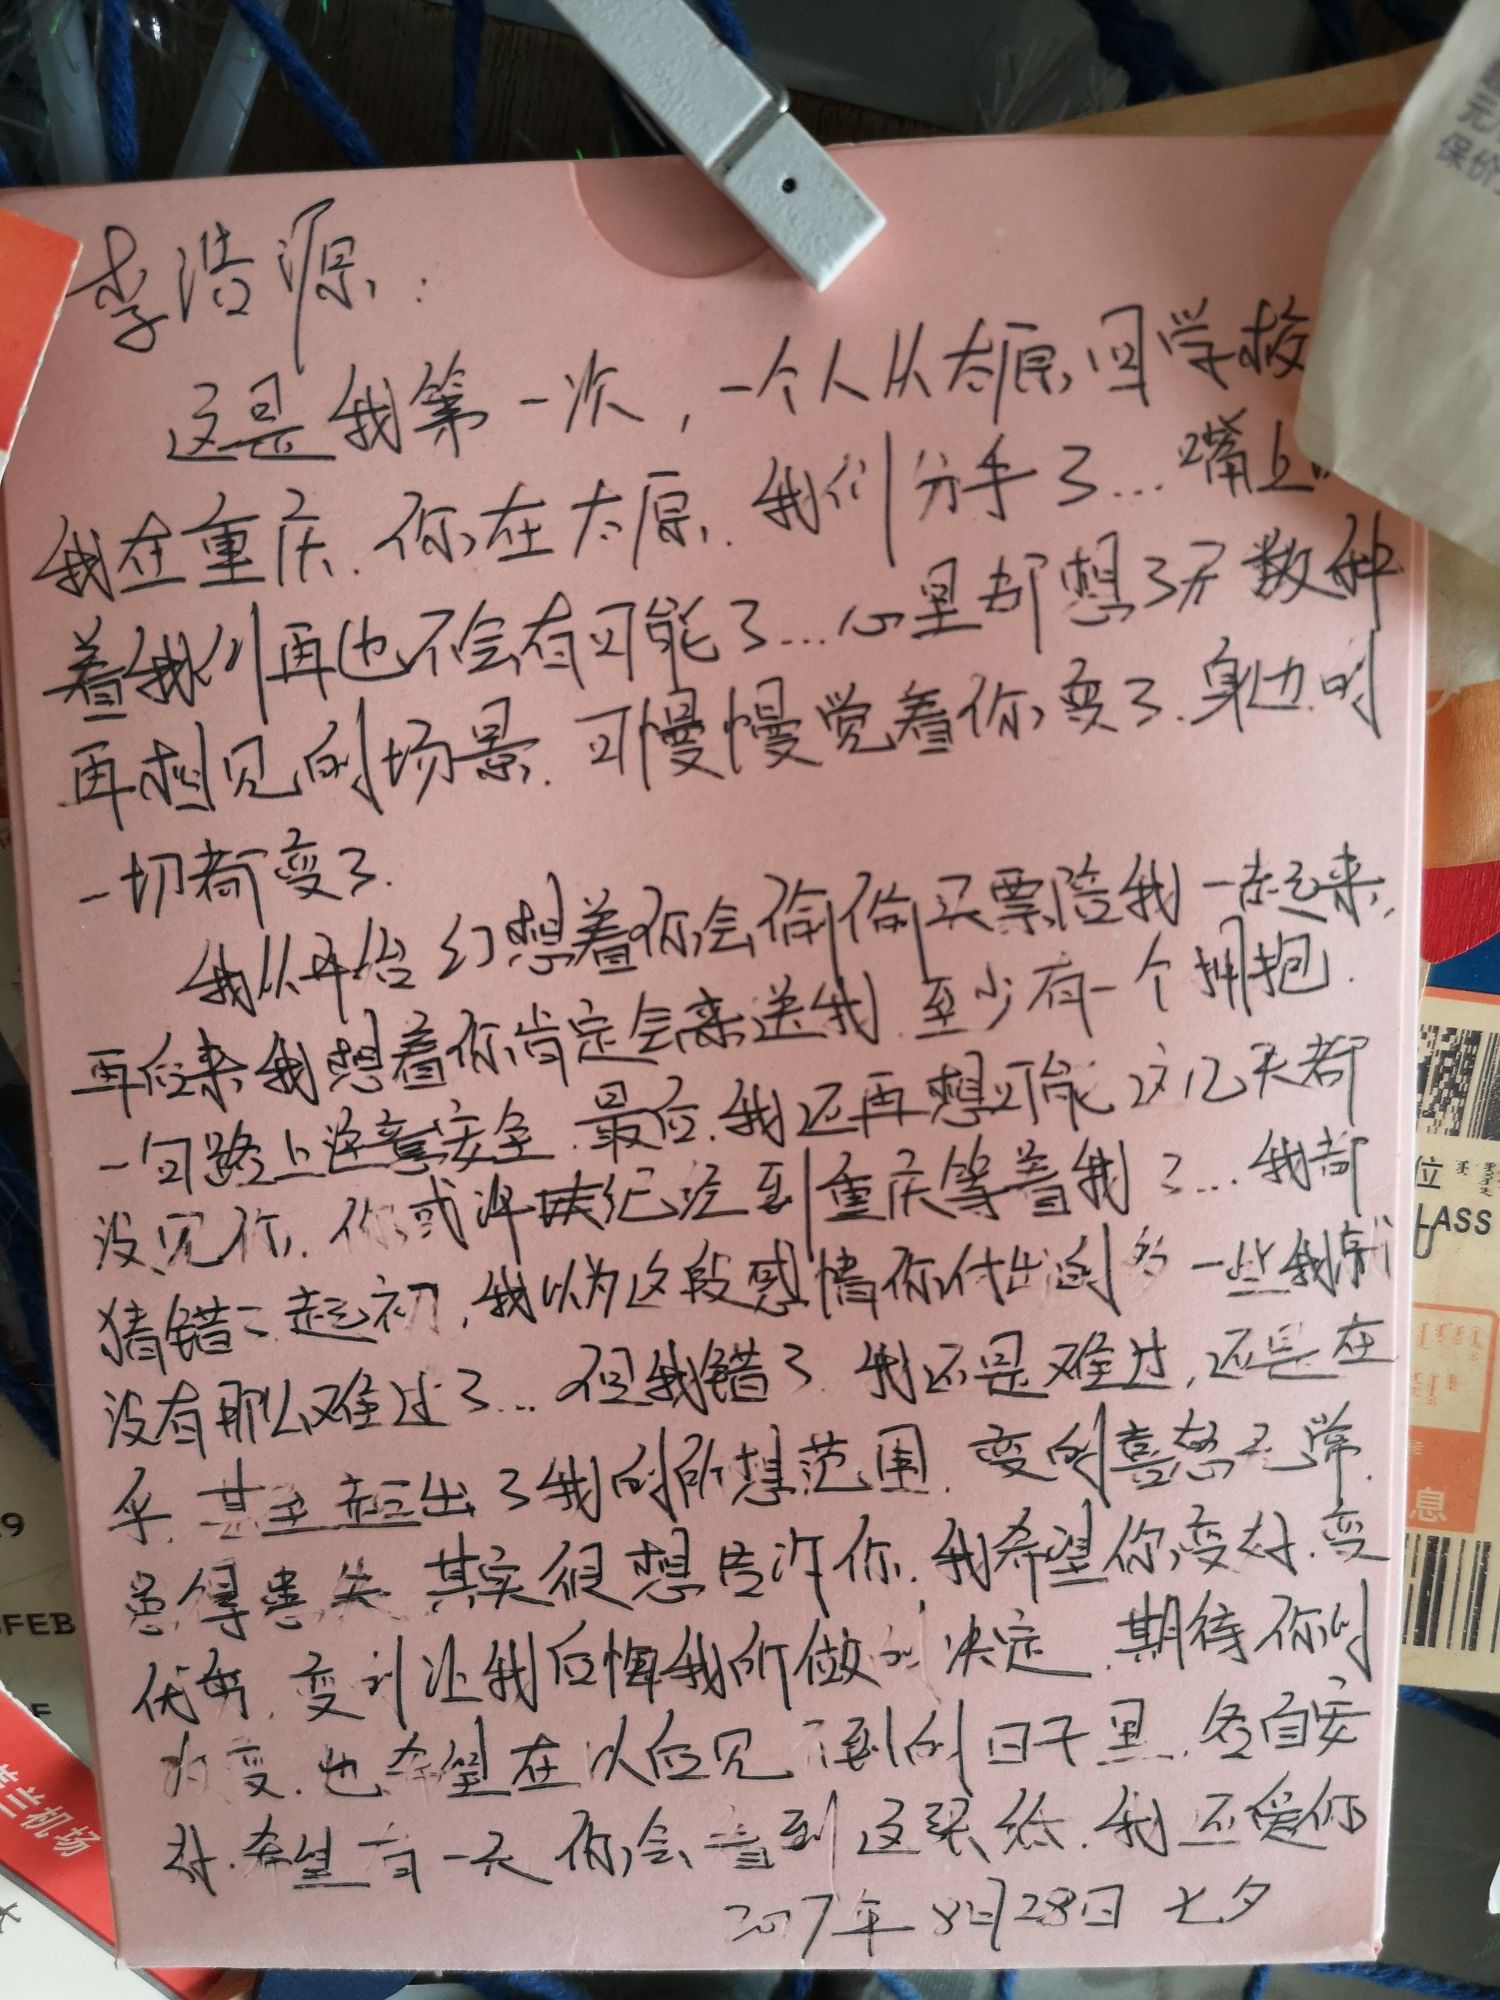 李浩源:
这是我第一次,一个人从太原回学校
我在重庆.你在太原.我们分手了...嘴上
着我们再也不会有可能了...心里却想了无数种
再相见的场景.可慢慢觉着你变了.身边的
一切都变了.
我从开始幻想着你会偷偷买票陪我一起来,
再后来我想着你肯定会来送我.至少有一个拥抱.
一句路上注意安全.最后.我还再想可能这几天都
没见你.你或许 已经到重庆等着我了...我都
猜错了.起初,我以为这段感情你付出的多一些我就
没有那么难过了...但我错了.我还是难过,还是在
乎.甚至超出了我的所想范围.变的喜怒无常.
患得患失.其实很想告诉你.我希望你变好.变
优秀.变到让我后悔我所做的决定.期待你的
改变.也希望在以后见不到的日子里.各自安
好.希望有一天你会看到这张纸.我还爱你
2017年8月28日 七夕
元
保价
位
LASS
息
9
FEB
兰机场